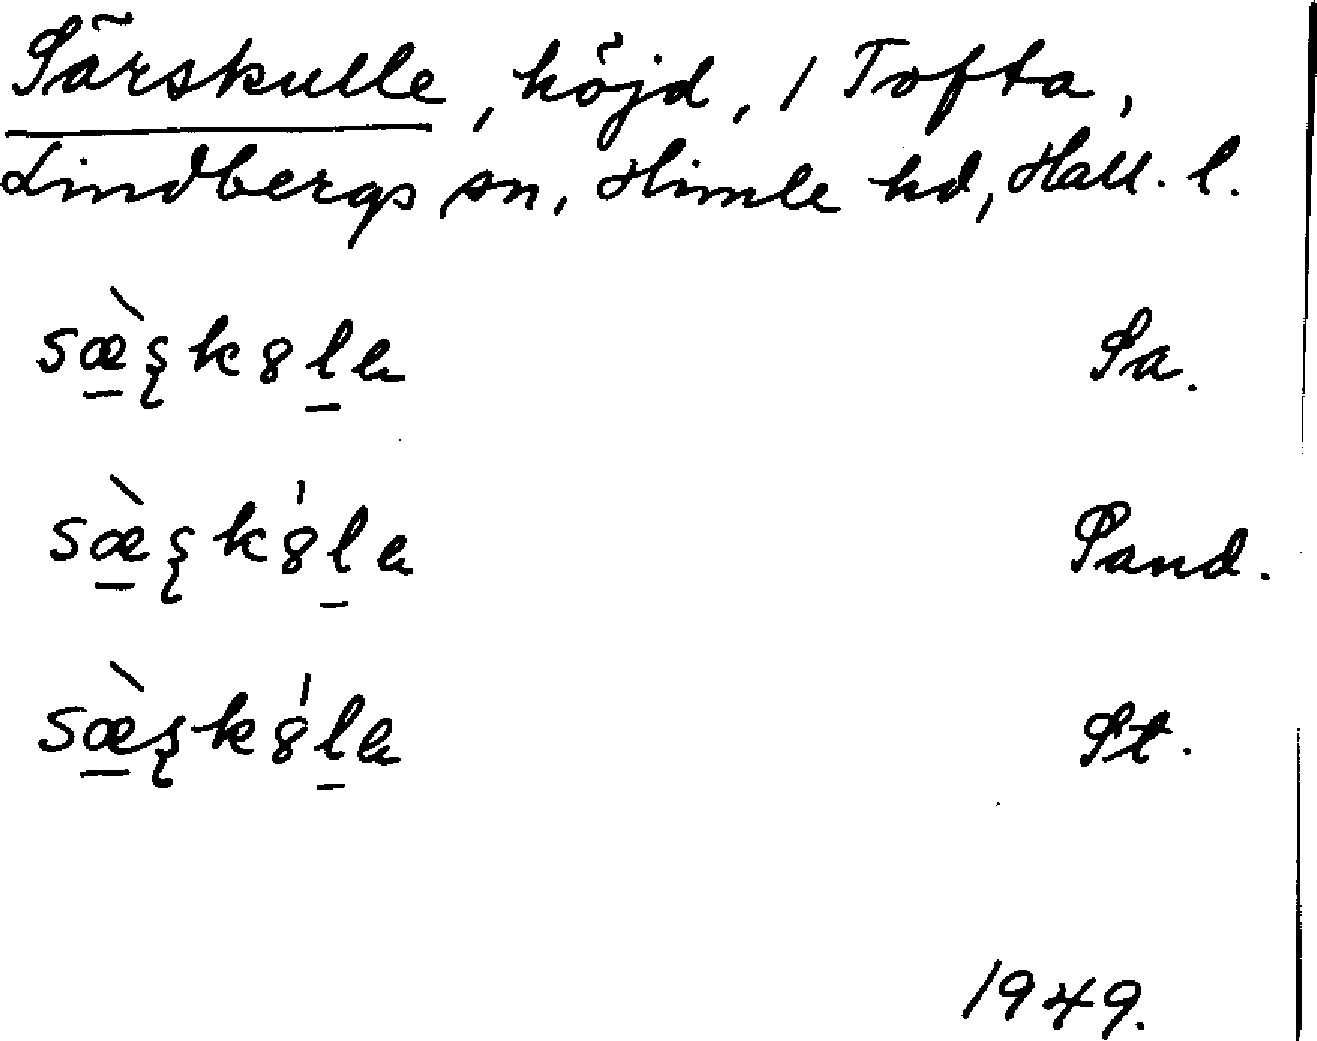 Särskulle, höjd, 1 Tofta,
Lindbergs sn, Himle hd, Hall. l.
sæ̠̀ʂk8l̠a Sa.
sæ̠̀ʂk8̍l̠a Sand.
sæ̠̀ʂk8̍l̠a St.
1949.